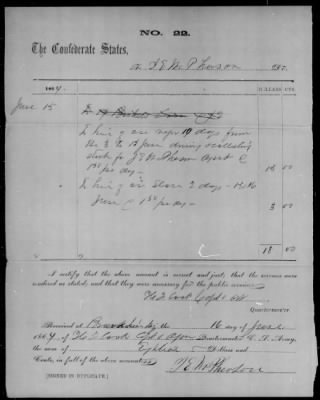 NO. 22.
The Confederate States,
To J E McPherson DR.
186 4 DOLLARS CTS.
June 15
To hire of one negro 10 days from
the 3 to 15 June during collecting
stock for J E McPherson Agent @
per day 15 00
To hire of one 2 days
June @ 1 50 per day 3 00
18 00
I certify that the above account is correct and just; that the services were
rendered as stated; and that they were necessary for the public service.
Tho J Cook Capt & AQM
QUARTERMASTER
Received at the 16 day of June
186 4, of Tho J Cook Capt & Quartermaster C. S. Army,
the sum of Eighteen Dollars and
Cents, in full of the above account.
J E McPherson
[SIGNED IN DUPLICATE.]